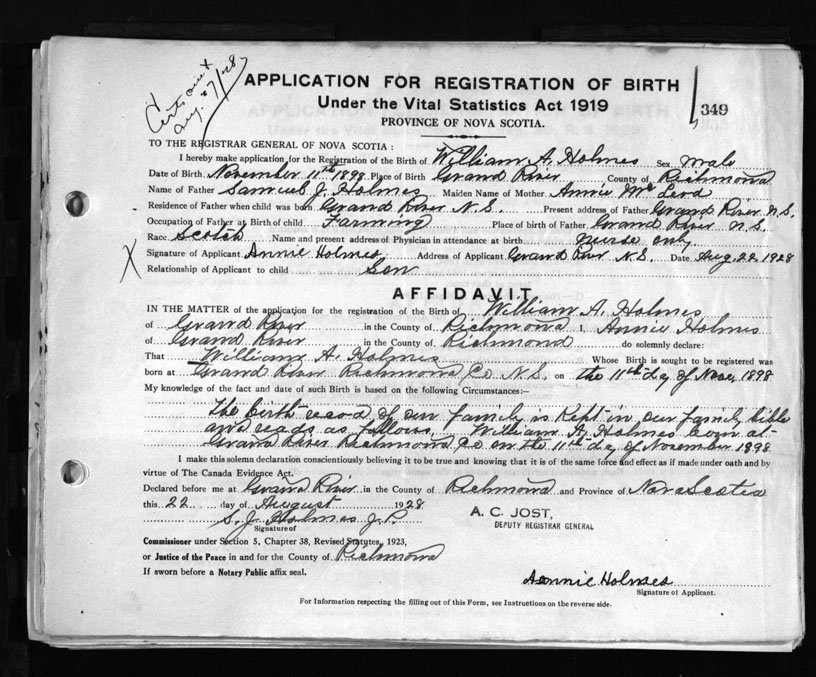 Certs issued
Aug. 27/28
APPLICATION FOR REGISTRATION OF BIRTH
Under the Vital Statistics Act 1919
PROVINCE OF NOVA SCOTIA.
349
TO THE REGISTRAR GENERAL OF NOVA SCOTIA :
I hereby make application for the Registration of the Birth of William A. Holmes Sex Male
Date of Birth November 11th 1898 Place of Birth Grand River County of Richmond
Name of Father Samuel J. Holmes Maiden Name of Mother Annie Mc Leod
Residence of Father when child was born Grand River N.S. Present address of Father Grand River N.S.
Occupation of Father at Birth of child Farming Place of birth of Father Grand River N.S.
Race Scotch Name and present address of Physician in attendance at birth nurse only
X Signature of Applicant Annie Holmes Address of Applicant Grand River N.S. Date Aug. 22 1928
Relationship of Applicant to child Son
AFFIDAVIT
IN THE MATTER of the application for the registration of the Birth of William A. Holmes
of Grand River in the County of Richmond I, Annie Holmes
of Grand River in the County of Richmond do solemnly declare:
That William A. Holmes Whose Birth is sought to be registered was
born at Grand River Richmond Co N.S. on the 11th Dy of Nov, 1898
My knowledge of the fact and date of such Birth is based on the following Circumstances:—
The birth record of our family is Kept in our family bible
and reads as follows William A. Holmes born at
Grand River Richmond Co on the 11th Dy of November 1898
I make this solemn declaration conscientiously believing it to be true and knowing that it is of the same force and effect as if made under oath and by
virtue of The Canada Evidence Act.
Declared before me at Grand River in the County of Richmond and Province of Nova Scotia
this 22 day of August 1928
A. C. JOST,
DEPUTY REGISTRAR GENERAL
S. J. Holmes J.P.
Signature of
Commissioner under Section 5, Chapter 38, Revised Statutes, 1923,
or Justice of the Peace in and for the County of Richmond
If sworn before a Notary Public affix seal.
Annie Holmes
Signature of Applicant.
For Information respecting the filling out of this Form, see Instructions on the reverse side.